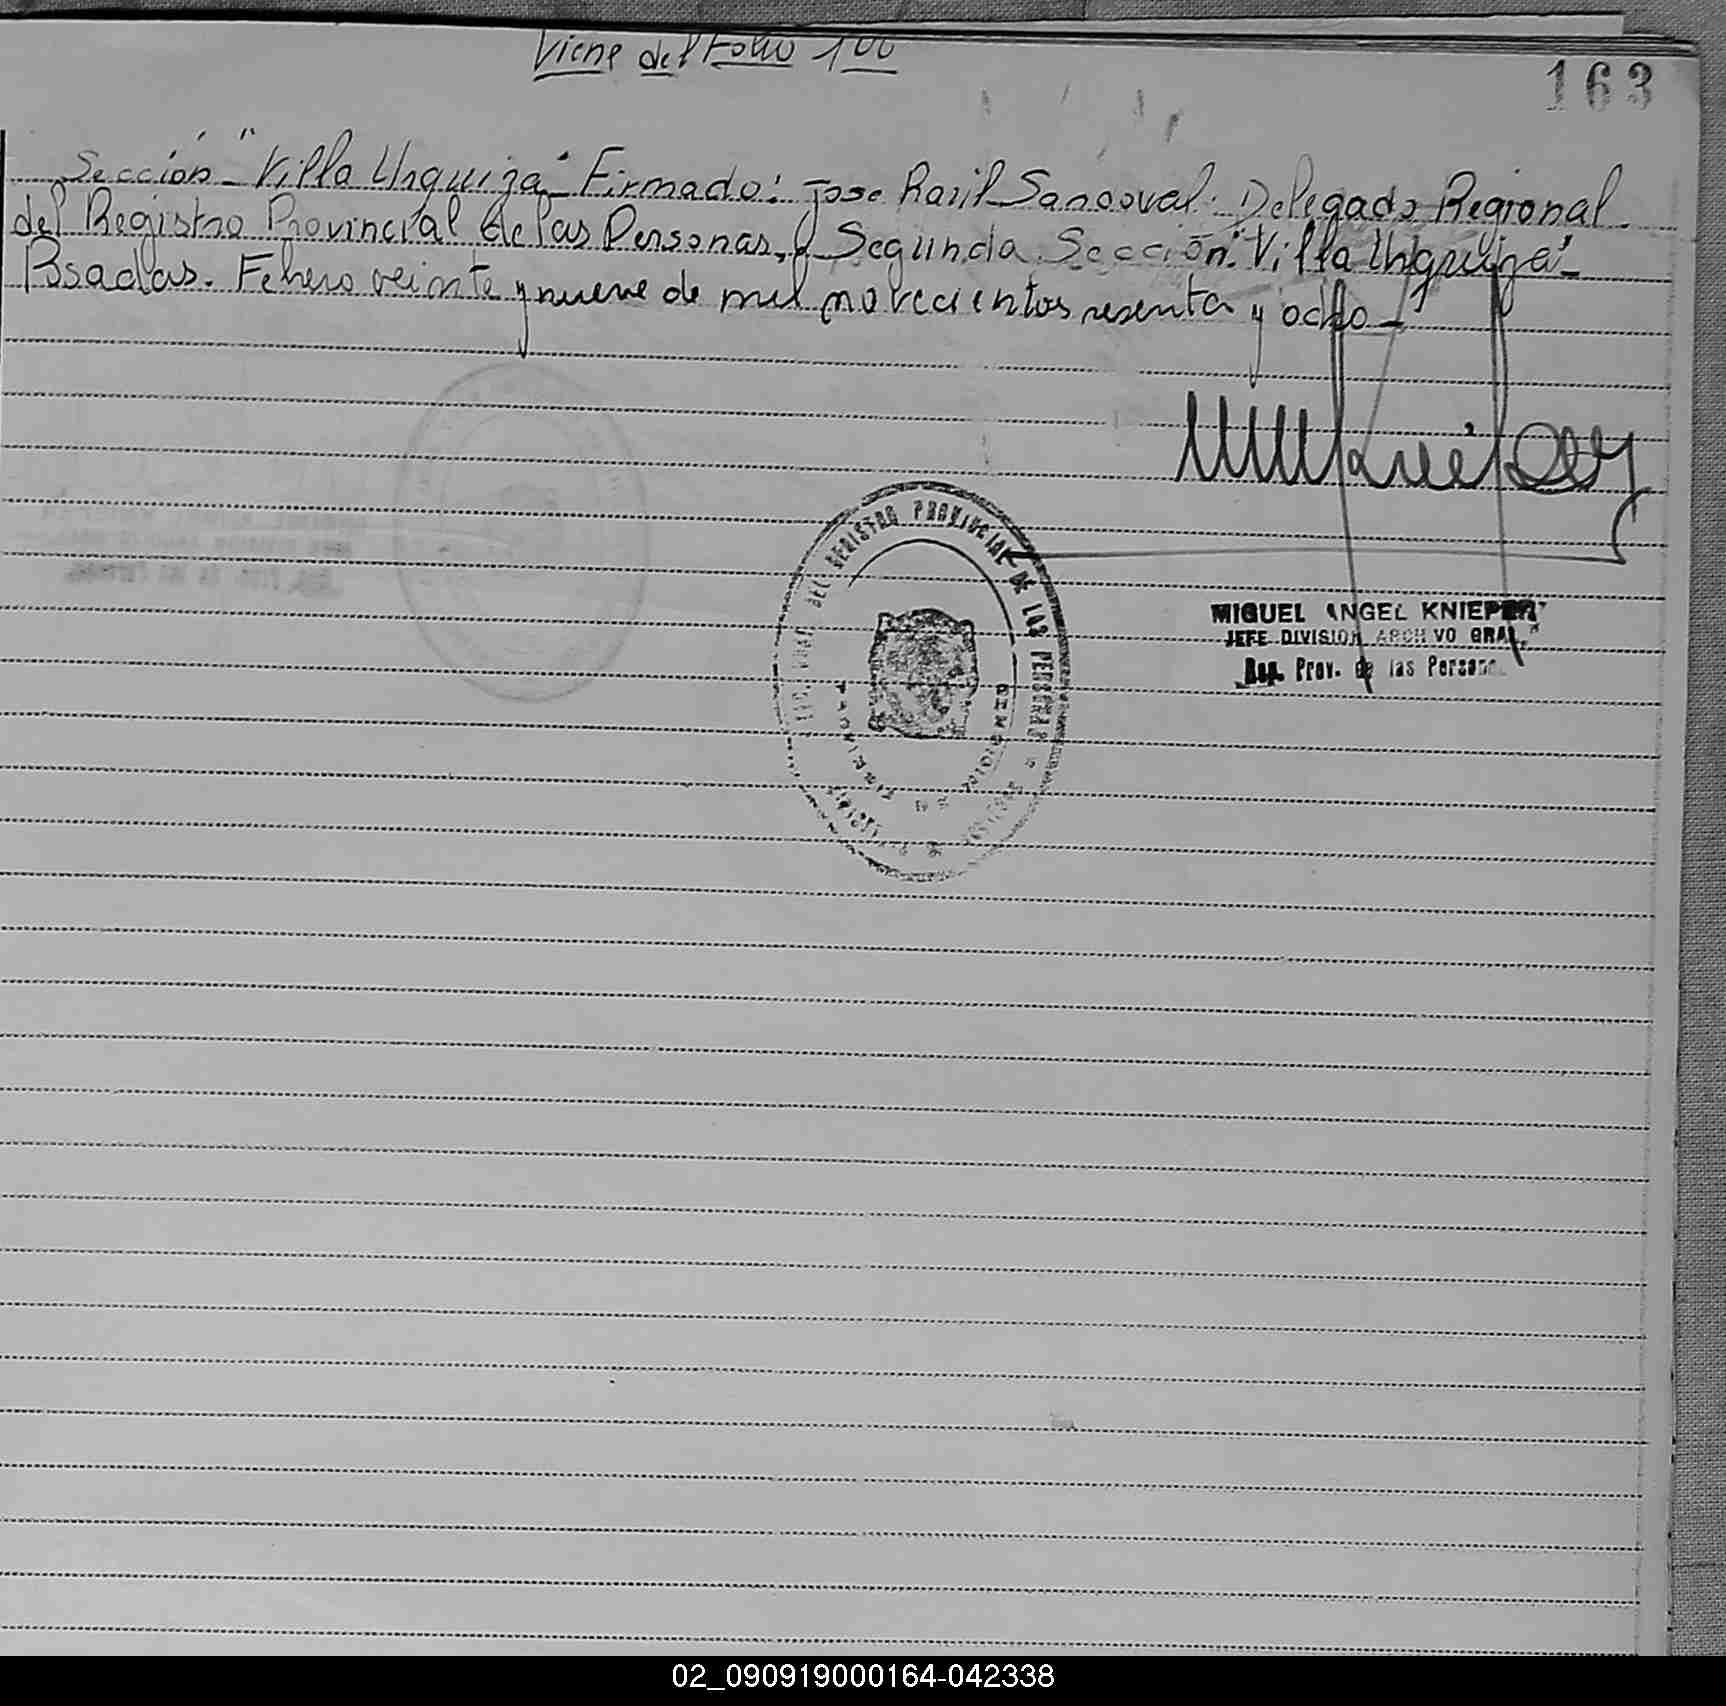 Viene del Folio 100
163
Sección "Villa Urquiza" Firmado: Jose Raúl Sandoval. Delegado Regional
del Registro Provincial de las Personas, Segunda Sección "Villa Urquiza"
Posadas. Febrero veinte y nueve de mil novecientos sesenta y ocho
DEL REGISTRO PROVINCIAL DE LAS PERSONAS
MIGUEL ANGEL KNIEPER
JEFE DIVISION ARCHIVO GRAL.
Reg. Prov. de las Personas
02_090919000164-042338